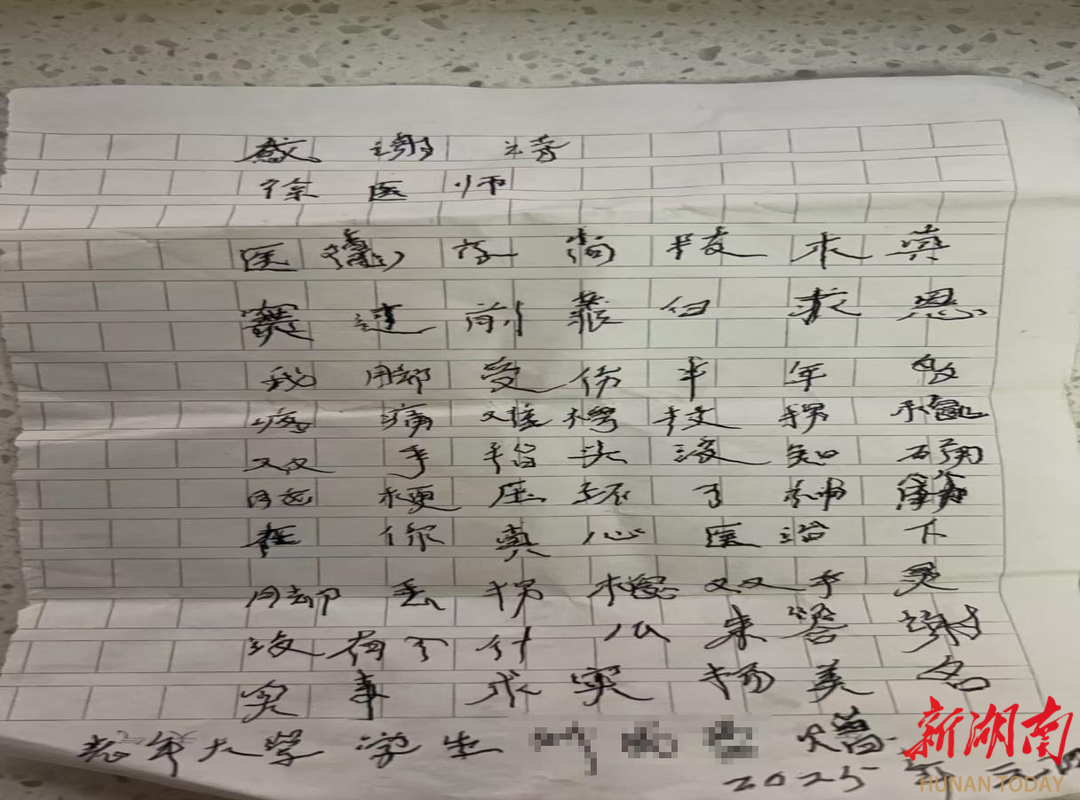 感谢诗
徐医师
医德高尚技术真
赛过前辈们救恩
我脚受伤半年
疼痛难撑技拐棍
双手指头没知
脱梗压坏了神
在你真心医治下
脚丢拐棍双手灵
没有了什么来答谢
实事求实扬美名
老年大学学生 赠
2025年
新湖南
HUNAN TODAY